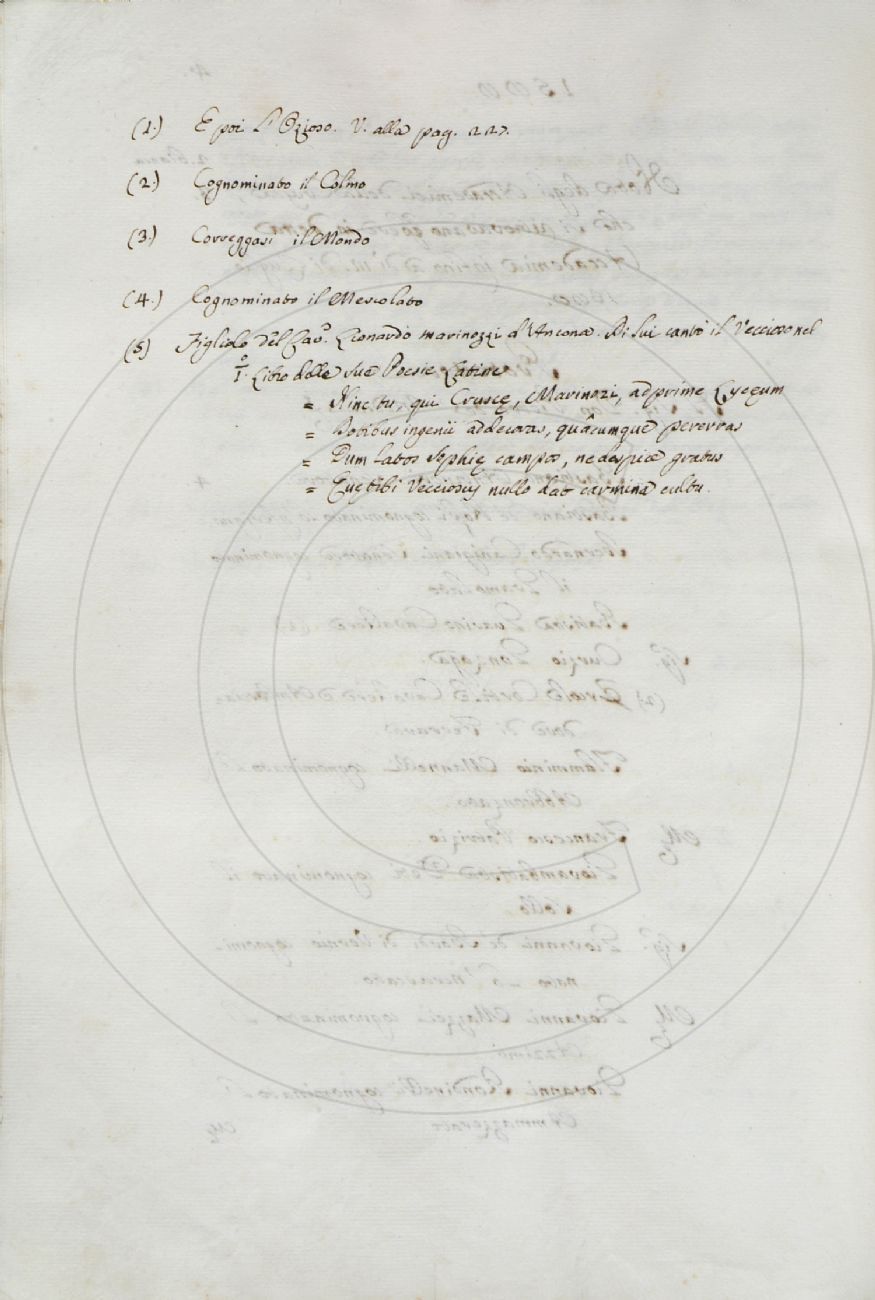 (1.) E poi L'Ozioso. V. alla pag. 227.
(2.) Cognominato il Colmo
(3.) Correggasi il Mondo
(4.) Cognominato il Mescolato
(5) Figliolo del Cav.º Lionardo Marinozzi d'Ancona. Di lui cantò il Veccioso nel
I.º Libro delle sue Poesie Latine
= Hinc tu, qui Cruscę, Marinozi, adprime Lyceum
= Dotibus ingenii addecoras, quâcumque pererras
= Dum latos Sophię campos, ne despice gratus
= Quę tibi Vecciosus nullo dat carmina cultu.